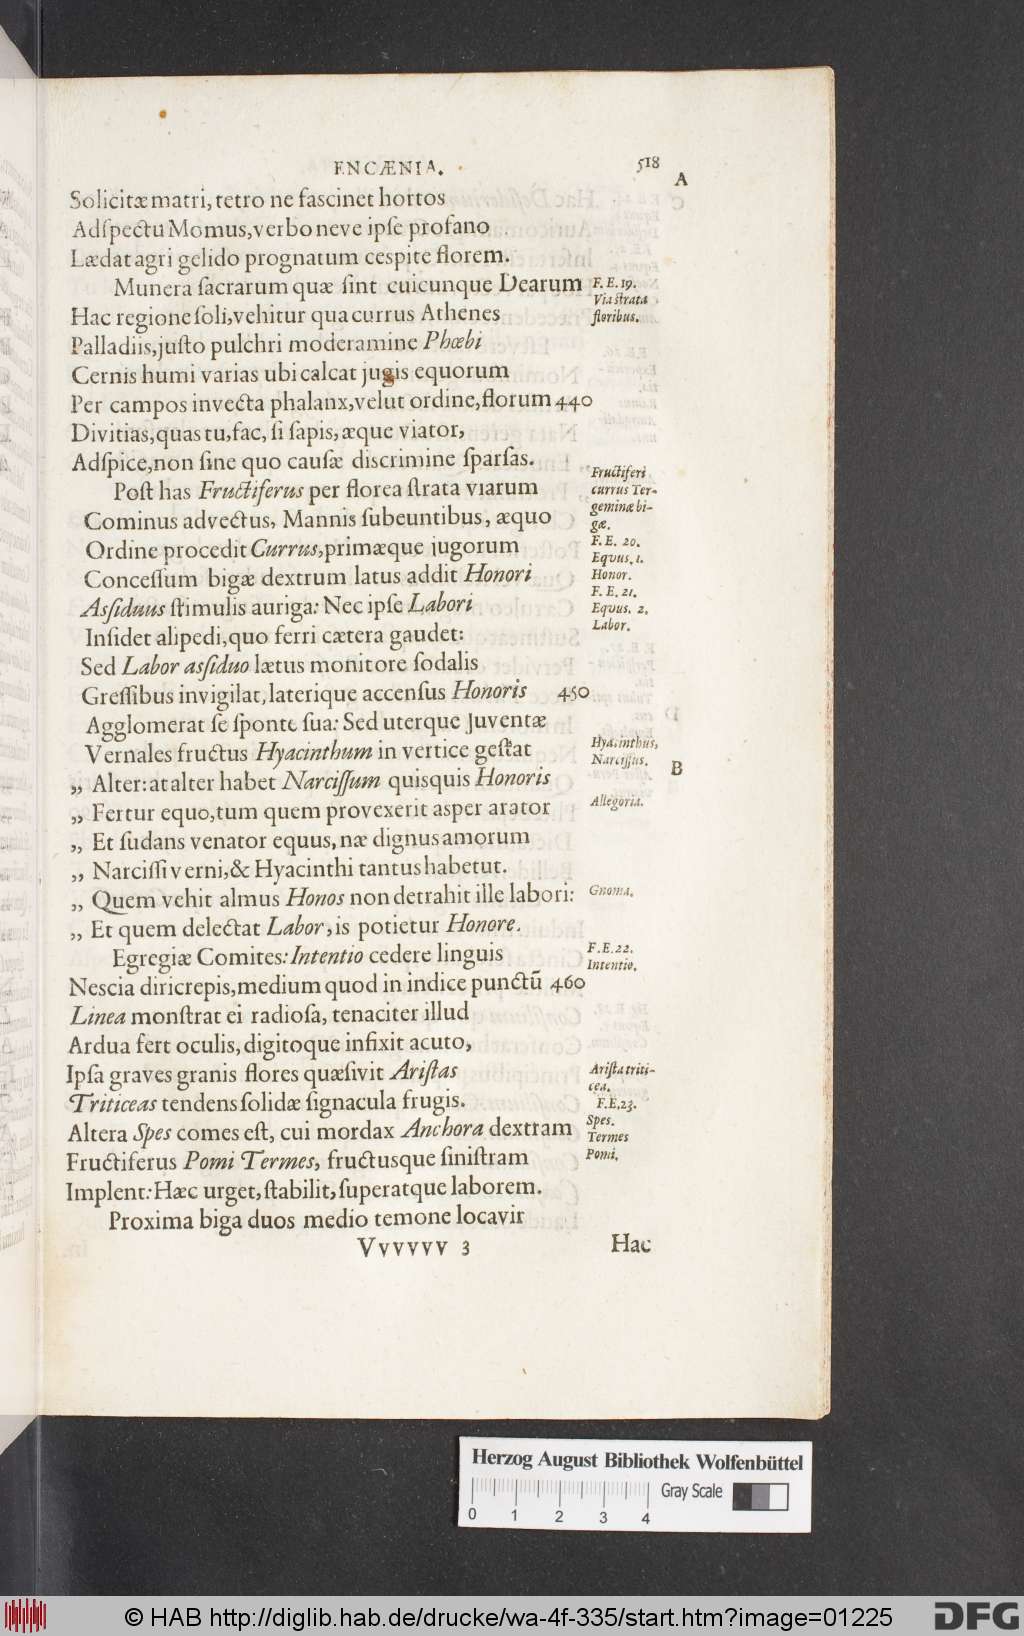 ENCÆNIA. 518
A
Solicitæ matri, tetro ne fascinet hortos
Adſpectu Momus, verbo neve ipſe profano
Lædat agri gelido prognatum ceſpite florem.
Munera ſacrarum quæ ſint cuicunque Dearum F. E. 19.
Via ſtrata
Hac regione ſoli, vehitur qua currus Athenes floribus.
Palladiis, juſto pulchri moderamine Phœbi
Cernis humi varias ubi calcat jugis equorum
Per campos invecta phalanx, velut ordine, florum 440
Divitias, quas tu, fac, ſi ſapis, æque viator,
Adſpice, non ſine quo cauſæ diſcrimine ſparſas.
Fructiferi
Poſt has Fructiferus per florea ſtrata viarum currus Ter-
geminæ bi-
Cominus advectus, Mannis ſubeuntibus, æquo gæ.
Ordine procedit Currus, primæque iugorum F. E. 20.
Equus. 1.
Conceſſum bigæ dextrum latus addit Honori Honor.
F. E. 21.
Aſſiduus ſtimulis auriga: Nec ipſe Labori Equus. 2.
Labor.
Inſidet alipedi, quo ferri cætera gaudet:
Sed Labor aſſiduo lætus monitore ſodalis
Greſſibus invigilat, laterique accenſus Honoris 450
Agglomerat ſe ſponte ſua: Sed uterque Juventæ
Vernales fructus Hyacinthum in vertice geſtat Hyacinthus,
Narciſſus.
B
„ Alter: at alter habet Narciſſum quisquis Honoris
„ Fertur equo, tum quem provexerit asper arator Allegoria.
„ Et ſudans venator equus, næ dignus amorum
„ Narciſſi verni, & Hyacinthi tantus habetut.
„ Quem vehit almus Honos non detrahit ille labori: Gnoma.
„ Et quem delectat Labor, is potietur Honore.
Egregiæ Comites: Intentio cedere linguis F. E. 22.
Intentio.
Nescia diricrepis, medium quod in indice punctũ 460
Linea monſtrat ei radioſa, tenaciter illud
Ardua fert oculis, digitoque infixit acuto,
Ipſa graves granis flores quæſivit Ariſtas Ariſta triti-
cea.
Triticeas tendens ſolidæ ſignacula frugis. F. E. 23.
Altera Spes comes eſt, cui mordax Anchora dextram Spes.
Termes
Fructiferus Pomi Termes, fructusque ſiniſtram Pomi.
Implent: Hæc urget, ſtabilit, ſuperatque laborem.
Proxima biga duos medio temone locavit
Vvvvvv 3 Hac
Herzog August Bibliothek Wolfenbüttel
Gray Scale
0 1 2 3 4
© HAB http://diglib.hab.de/drucke/wa-4f-335/start.htm?image=01225 DFG